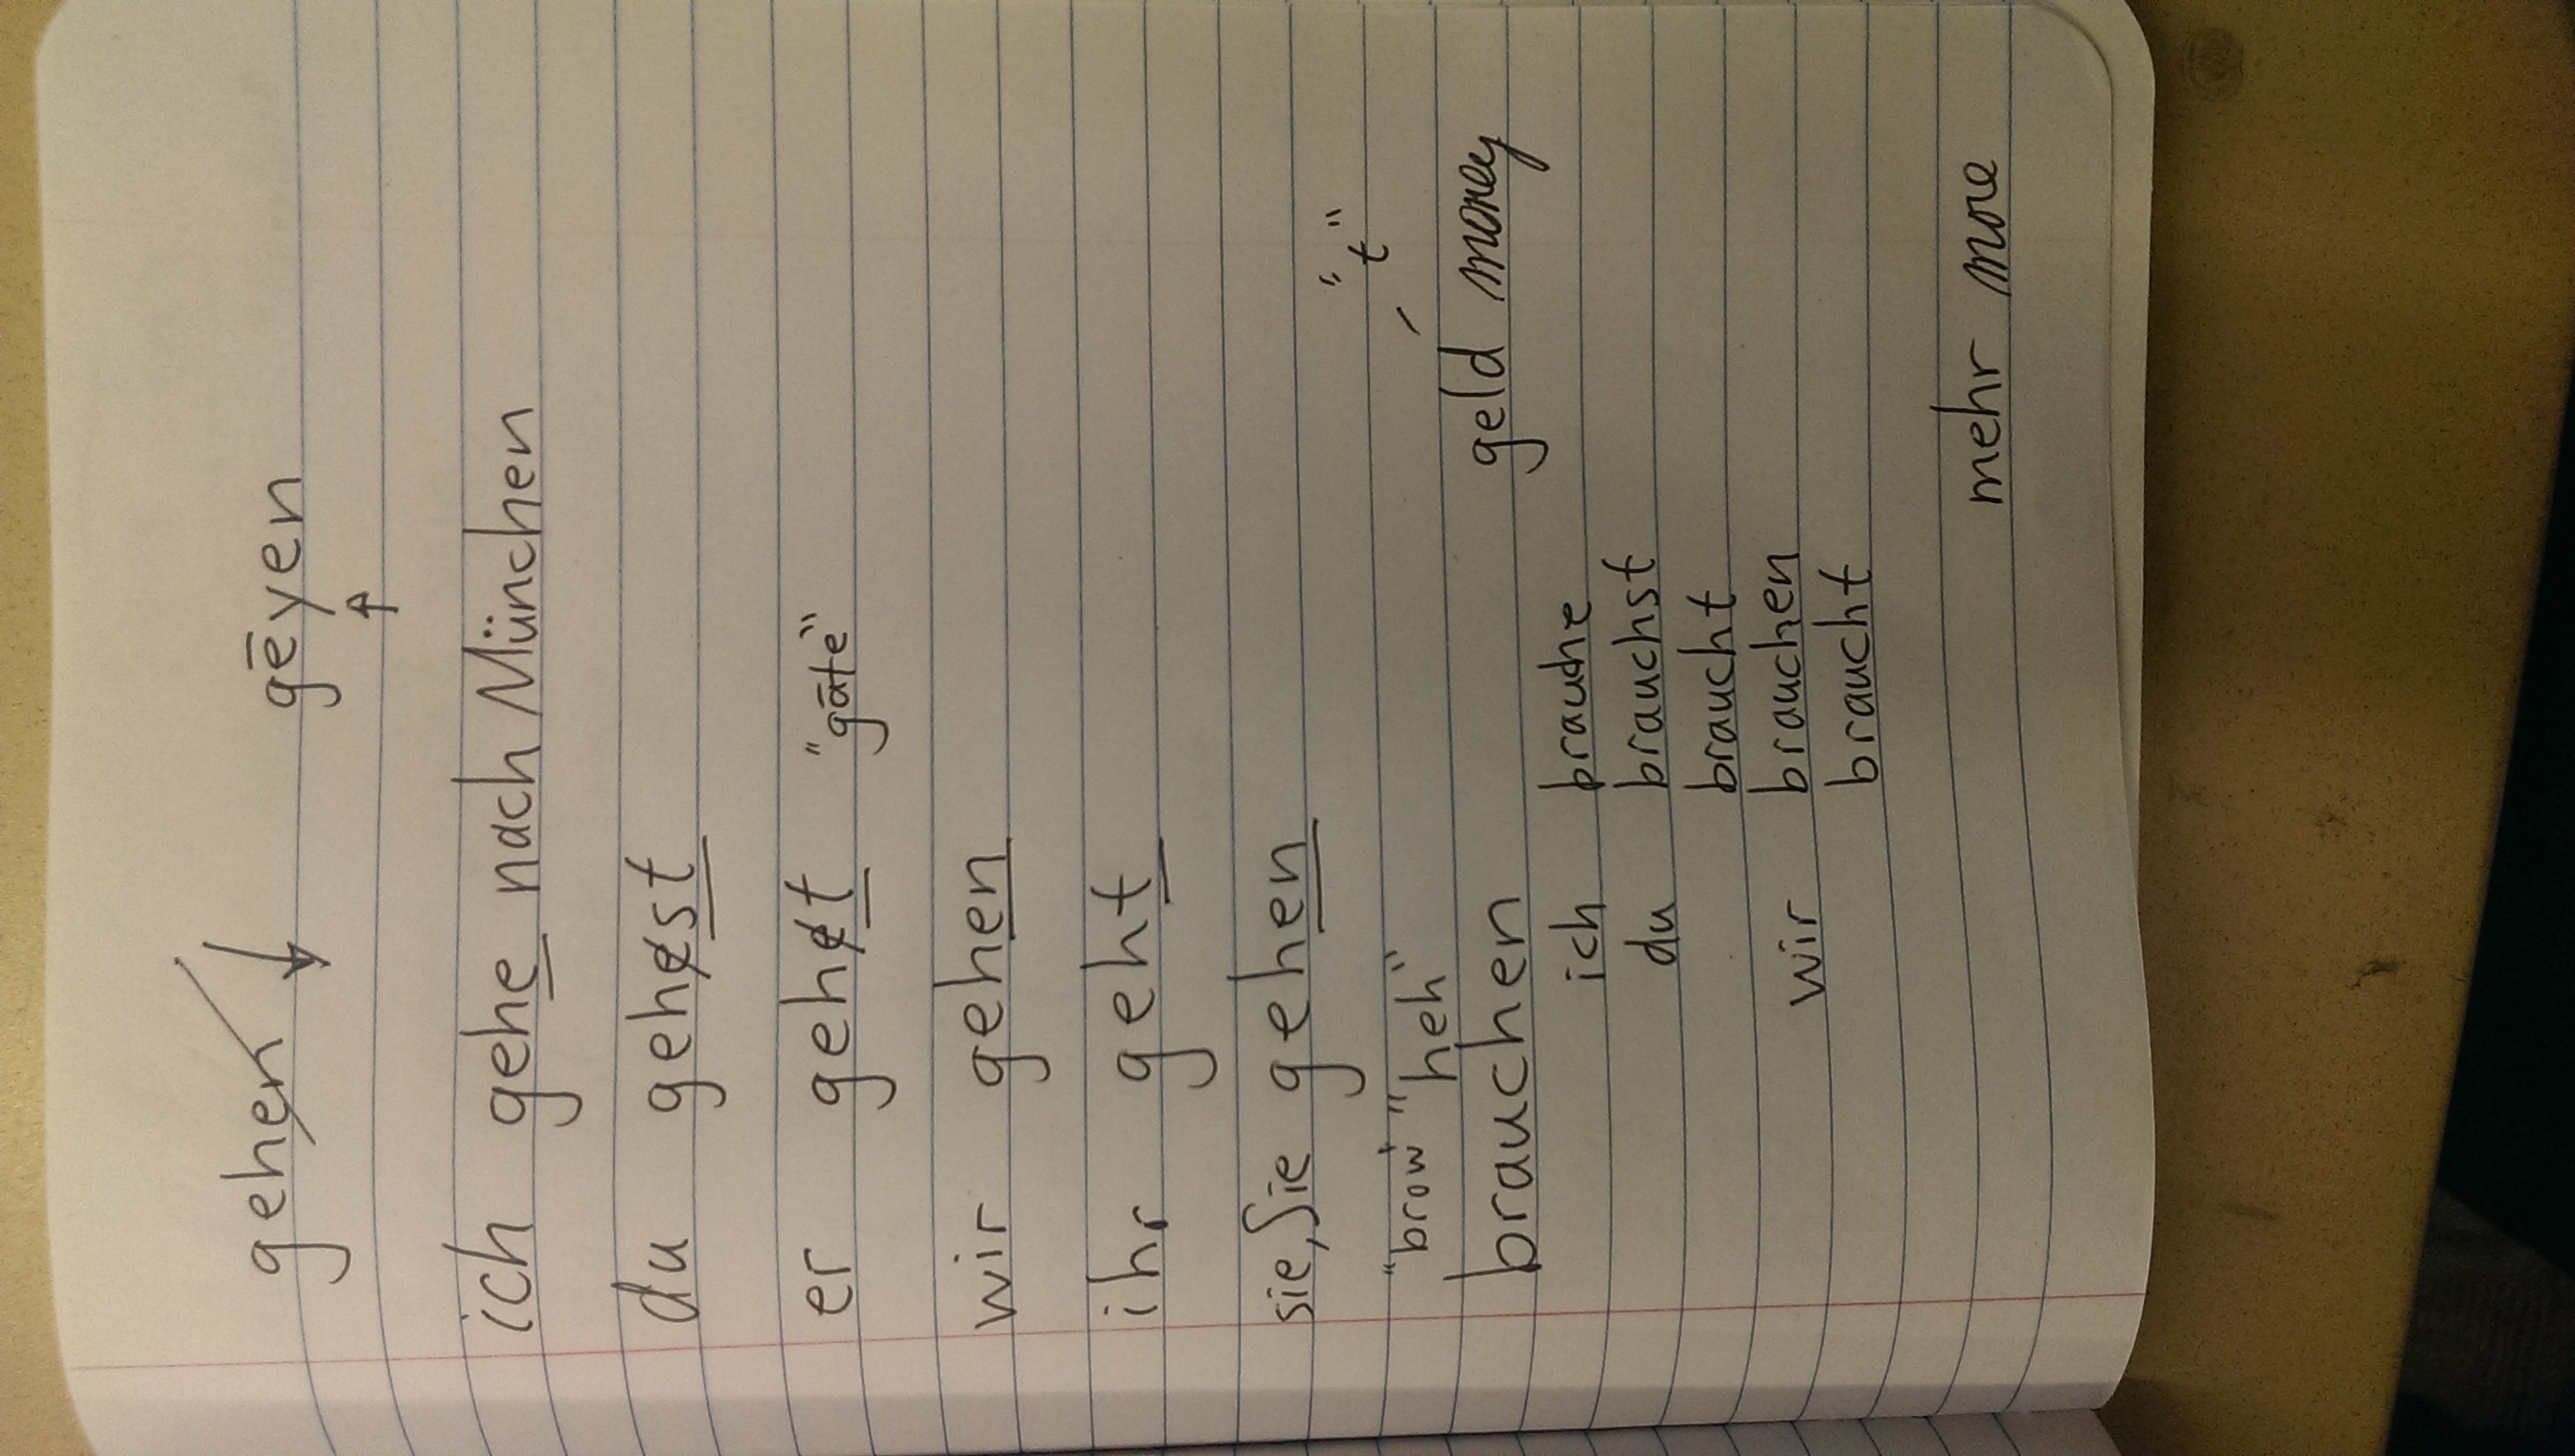 gehen gēyen
ich gehe nach München
du gehest
er gehet "gāte"
wir gehen
ihr geht
sie, Sie gehen
"brow" "heh" "t"
brauchen geld money
ich brauche
du brauchst
braucht
wir brauchen
braucht
mehr more